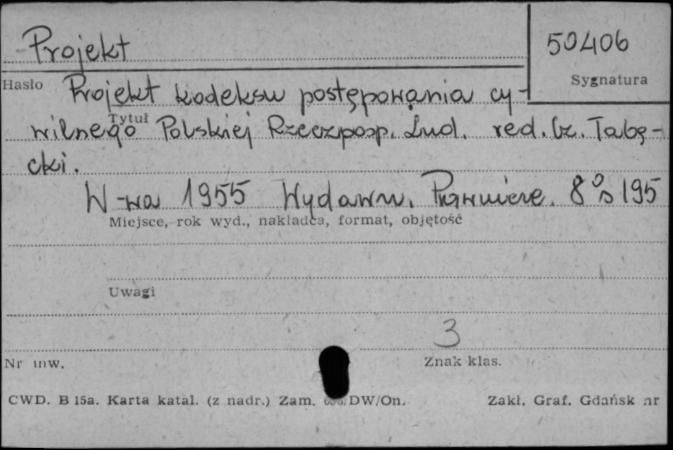 Projekt
50406
Hasło
Sygnatura
Projekt kodeksu postępowania cy-
Tytuł
wilnego Polskiej Rzeczposp. Lud. red. Cz. Tabę-
cki.
W-wa 1955 Wydawn. Prawnicze. 8° s 195
Miejsce, rok wyd., nakładca, format, objętość
Uwagi
3
Nr inw.
Znak klas.
CWD. B 15a. Karta katal. (z nadr.) Zam. DW/On.
Zakł. Graf. Gdańsk nr